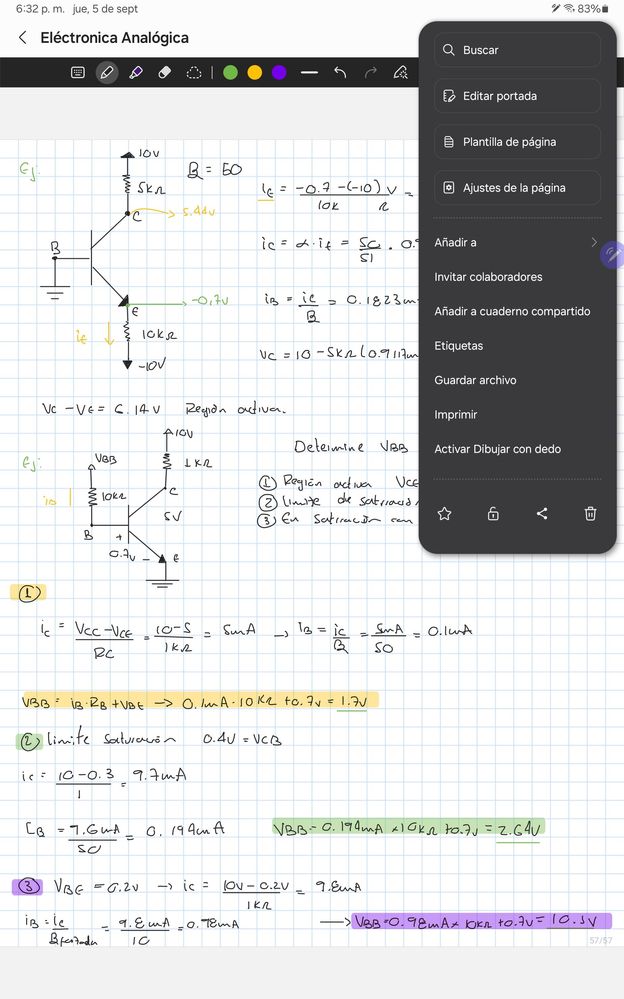 6:32 p. m. jue, 5 de sept 83%
Eléctronica Analógica
Buscar
Editar portada
Plantilla de página
Ajustes de la página
Añadir a
Invitar colaboradores
Añadir a cuaderno compartido
Etiquetas
Guardar archivo
Imprimir
Activar Dibujar con dedo
Ej:
10V
5kΩ
C
5.44V
B
E
-0.7V
iE
10kΩ
-10V
β = 50
IE = -0.7 -(-10) V =
10k Ω
ic = α · iE = 50 . 0.9
51
iB = ic = 0.1823m
β
Vc = 10 - 5kΩ (0.9117m
Vc - VE = 6.14V Región activa.
Ej:
VBB
10V
1kΩ
iB
10kΩ
C
5V
B
+
0.7V -
E
Determine VBB
① Región activa VCE
② Limite de saturació
③ En saturación con
①
ic = Vcc - VCE = 10-5 = 5mA → IB = ic = 5mA = 0.1mA
RC 1kΩ β 50
VBB = iB·RB + VBE → 0.1mA · 10kΩ + 0.7V = 1.7V
② limite saturación 0.4V = VCB
ic = 10 - 0.3 = 9.7mA
1
IB = 9.6mA = 0.194mA VBB = 0.194mA × 10kΩ + 0.7V = 2.64V
50
③ VBE = 0.2V → ic = 10V - 0.2V = 9.8mA
1kΩ
iB = ic = 9.8mA = 0.98mA → VBB = 0.98mA × 10kΩ + 0.7V = 10.5V
βforzada 10
57/57